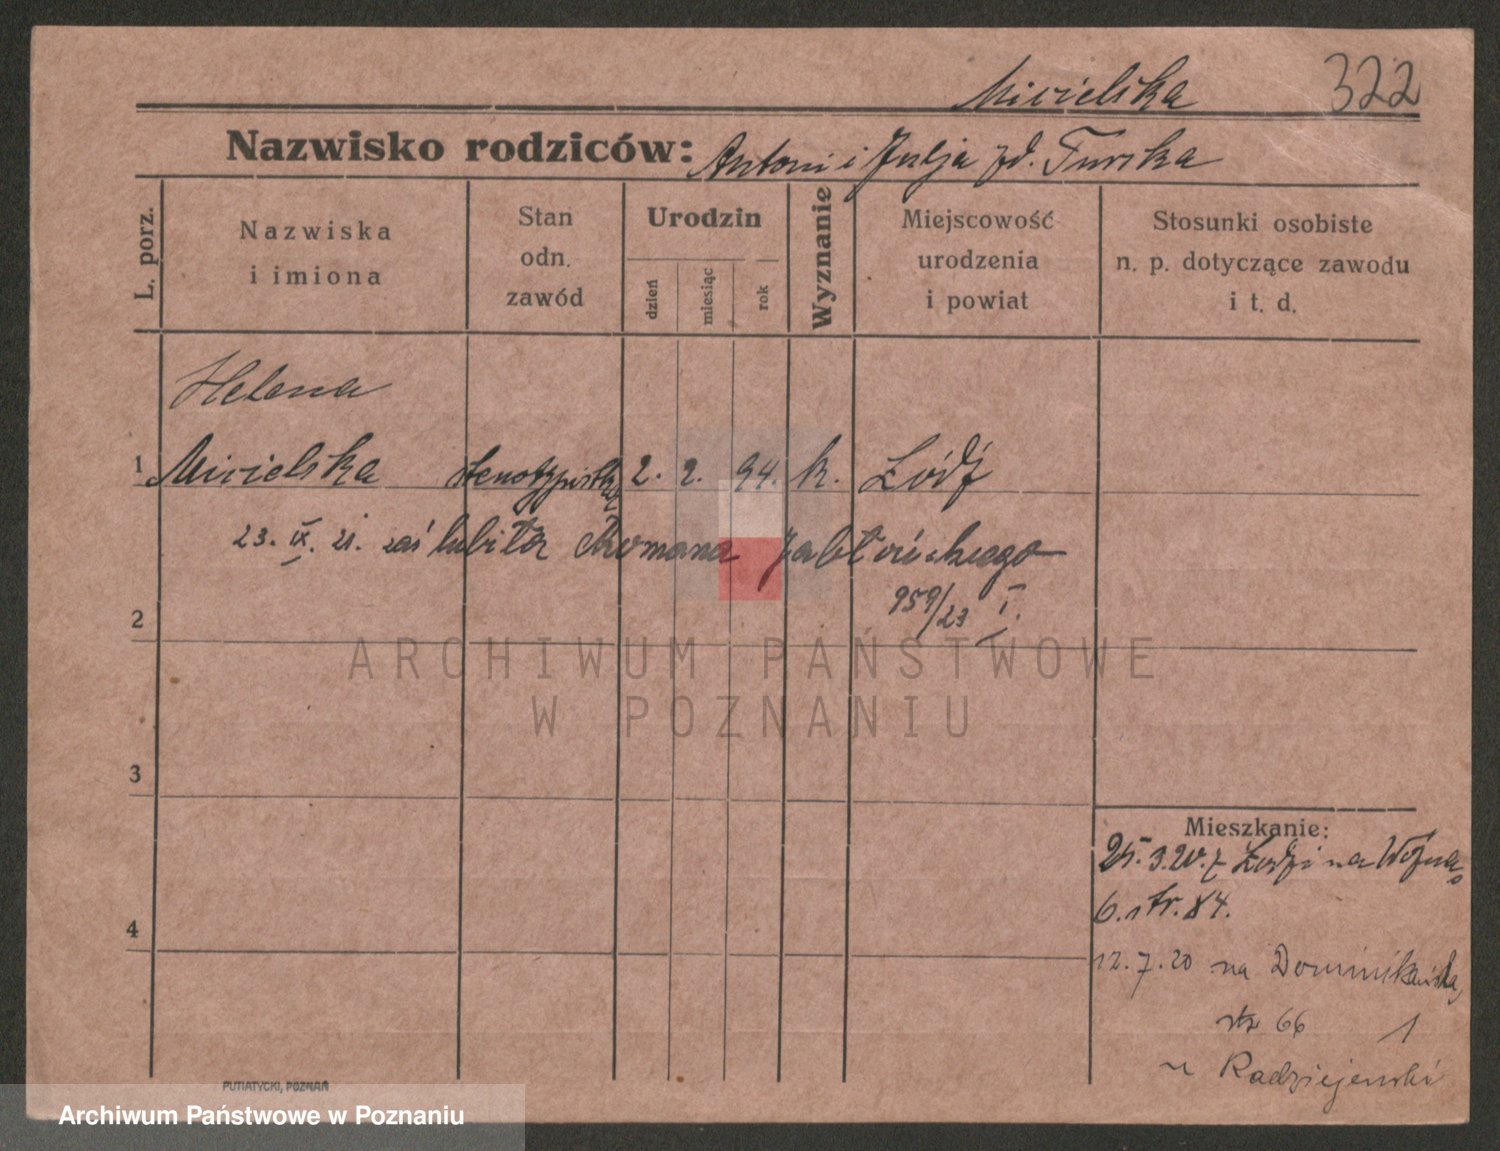 Micielska 322
Nazwisko rodziców: Antoni i Julja zd. Turska
L. porz.
Nazwiska
i imiona
Stan
odn.
zawód
Urodzin
dzień
miesiąc
rok
Wyznanie
Miejscowość
urodzenia
i powiat
Stosunki osobiste
n. p. dotyczące zawodu
i t. d.
Helena
1 Micielska stenotypistka 2. 2. 94. k. Łódź
23. IX. 21. zaślubiła Romana Jabłońskiego
959/23 I.
2
ARCHIWUM PAŃSTWOWE
W POZNANIU
3
Mieszkanie:
25.3.20. z Łodzi na Woźna
6. str. 84.
4
12.7.20 na Dominikańska,
str 66 1
u Radziejewski
PUTIATYCKI, POZNAŃ
Archiwum Państwowe w Poznaniu